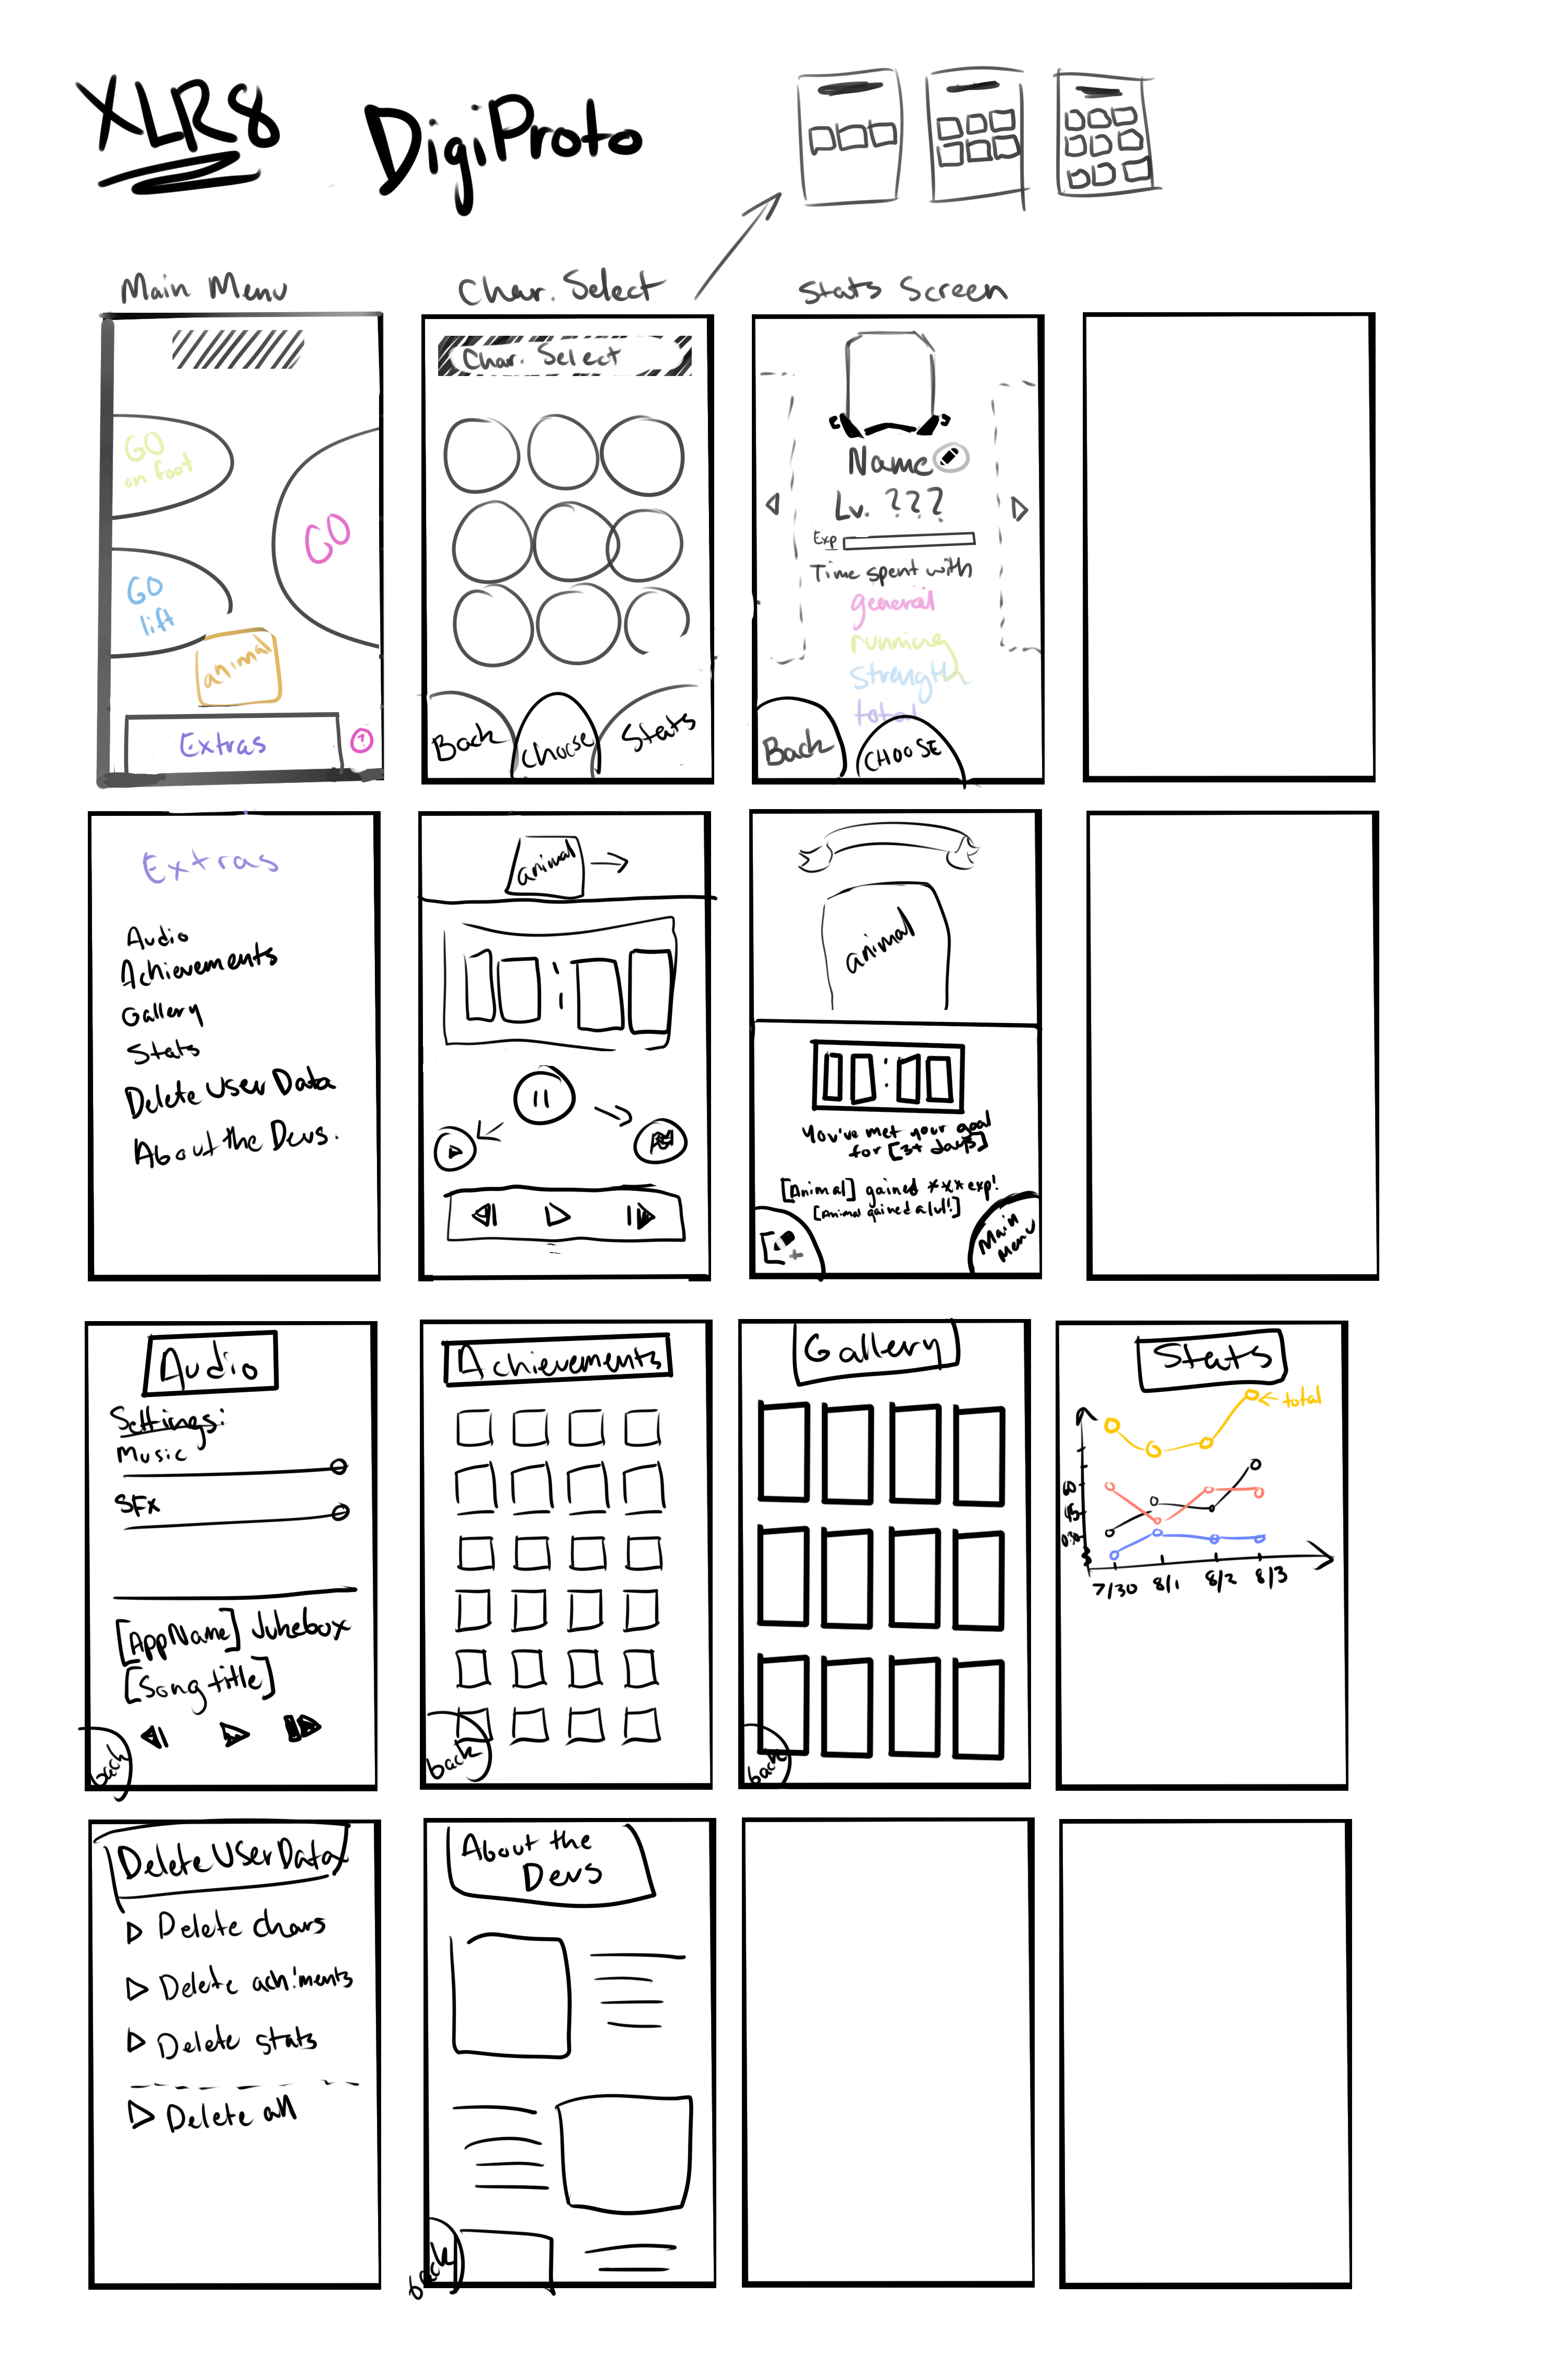 XLR8
DigiProto
Main Menu
Char. Select
Stats Screen
GO
on foot
GO
GO
lift
animal
Extras
?
Char. Select
Back
choose
Stats
Name
Lv. ???
Exp
Time spent with
general
running
strength
total
Back
CHOOSE
Extras
Audio
Achievements
Gallery
Stats
Delete User Data
About the Devs.
animal
animal
You've met your goal
for [3+ days]
[Animal] gained *** exp!
[Animal gained a lvl!]
Main
Menu
Audio
Settings:
Music
SFX
[AppName] Jukebox
[Song title]
back
Achievements
back
Gallery
back
Stats
total
7/30 8/1 8/2 8/3
Delete User Data
Delete chars
Delete ach'ments
Delete stats
Delete all
About the
Devs
back